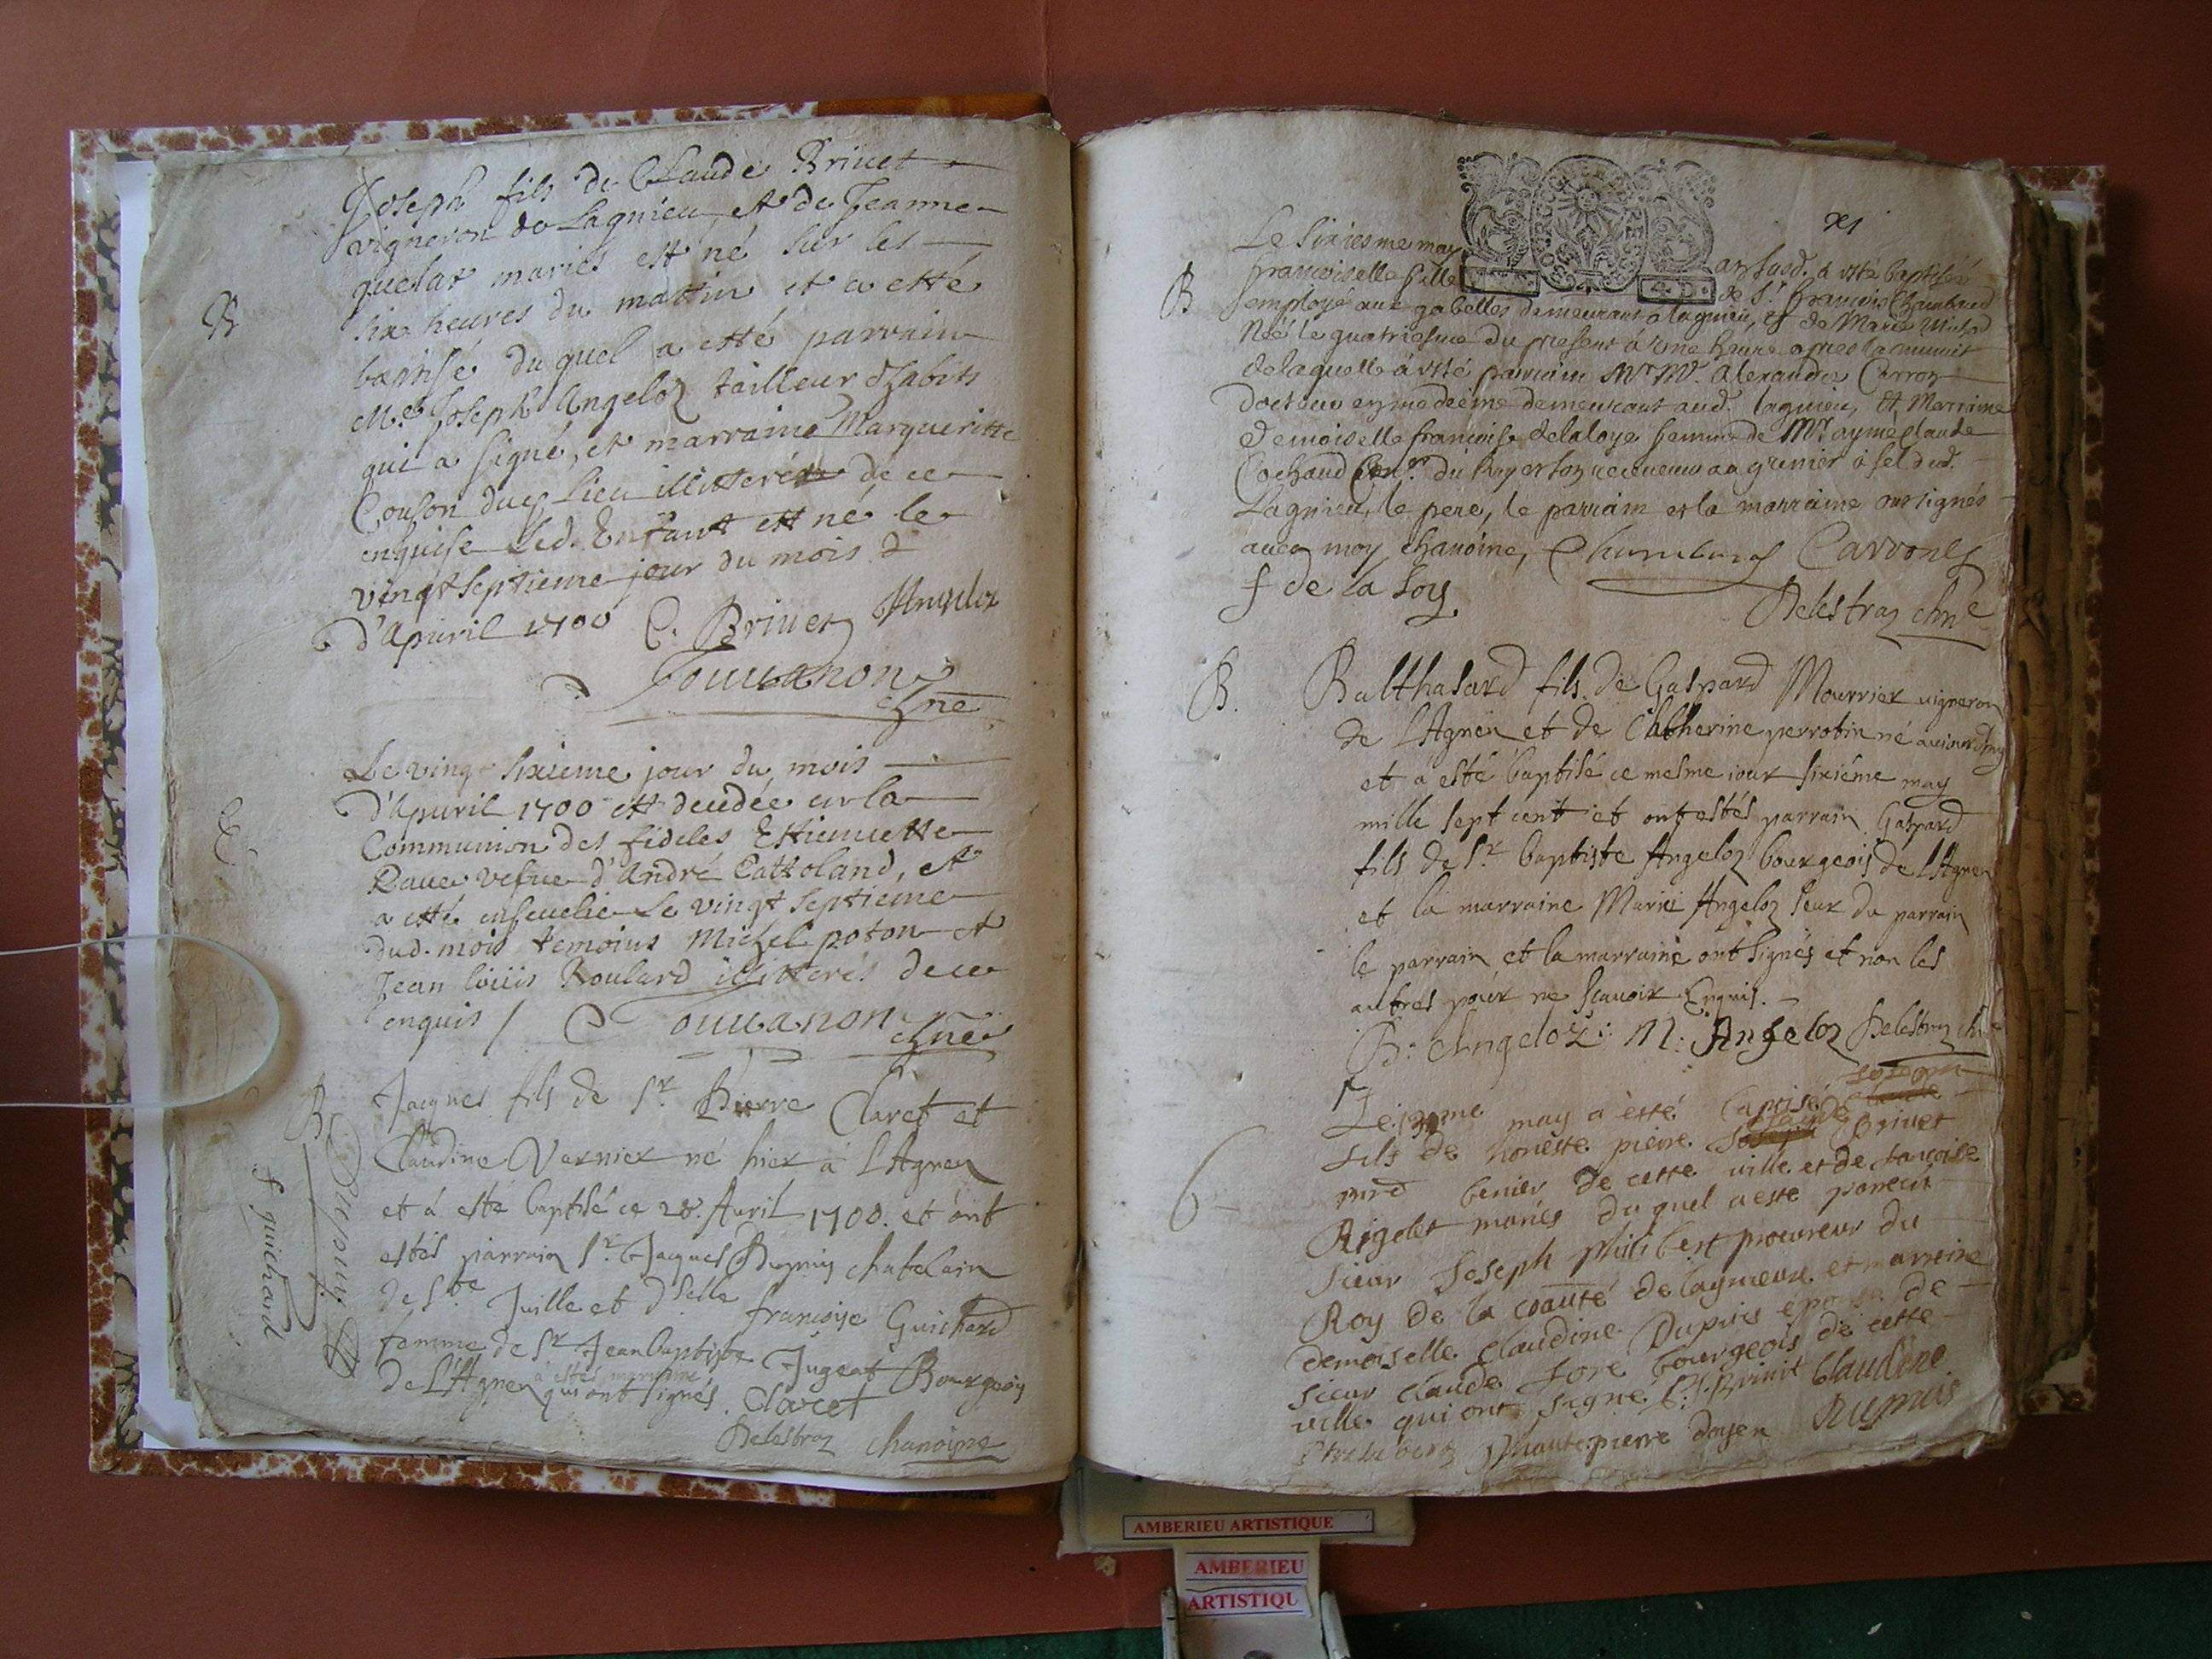 B
Joseph fils de Claude Brivet
vigneron de Lagnieu, et de Jeanne
quelat mariés est né sur les
six heures du mattin et a etté
baptisé duquel a etté parrain
M.e Joseph Angeloz tailleur d'habits
qui a signé, et marraine Margueritte
Couson dud. lieu illitterée de ce
enquise led. Enfant est né le
vingt septieme jour du mois
d'Apuril 1700 C. Brivet Angeloz
Jouvanon
chne
E
Le vingt sixieme jour du mois
d'Apuril 1700 est decedée en la
Communion des fideles Estiennette
vefue d'André Cattoland, et
a etté enseuelie le vingt septieme
dud. mois temoins Michel poton et
Jean loüis Roulard illitterés de ce
enquis / Jouuanon
chne
B
Jacques fils de Sr. Pierre Claret et
Claudine Vernier né hier à L'Agneu
et à esté baptisé ce 28. Auril 1700. et ont
estés parrain Sr. Jacques Dupuis chatelain
de Ste Juille et dselle francoise Guichard
femme de Sr Jean baptiste Jugeat Bourgeois
à estée marraine
de L'Agneu qui ont signés. Claret
Delestraz chanoine
Dupuis
f guichard
xi
B
Le sixiesme may an susd. à esté baptisée
francoise fille de Sr. francois Chambard
employé aux gabelles demeurant a lagnieu, et de Marie
Née le quatriesme du present à une heure apres la minuit
de laquelle à esté parrain Mr Mr. Alexandre Carron
Docteur en medecine demeurant aud. lagnieu, Et Marraine
Demoiselle francoise delaloye femme de Mr ayme claude
Cochaud Conr. du Roy et son receueur au grenier à sel dud.
Lagnieu, le pere, le parrain et la marraine ont signés
auec moy chanoine, Carron
f de la Loy
Delestraz chne
B.
Balthasard fils de Gaspard Mourrier vigneron
de L'Agneu et de Catherine perrotin né aujourdhuy
et à esté baptisé ce mesme iour sixiéme may
mille sept cent et ont estés parrain Gaspard
fils de Sr. baptiste Angeloz bourgeois de L'Agneu
et la marraine Marie Angeloz seur du parrain
le parrain et la marraine ont signés et non les
autres pour ne scauoir Enquis.
B: Angeloz: M: Angeloz Delestraz chne
6
Le 13me may a esté baptisé
fils de honeste pierre Brivet
de cette ville et de francoise
Rigolet mariés duquel a este parrein
sieur Joseph philibert procureur du
Roy de la coauté de lagnieux et marreine
demoiselle claudine Dupuis épouse de
sieur claude fore bourgeois de cette
ville qui ont signé P. Brivit Claudine
Philibert phautepierre doyen Dupuis
AMBERIEU ARTISTIQUE
AMBERIEU
ARTISTIQU